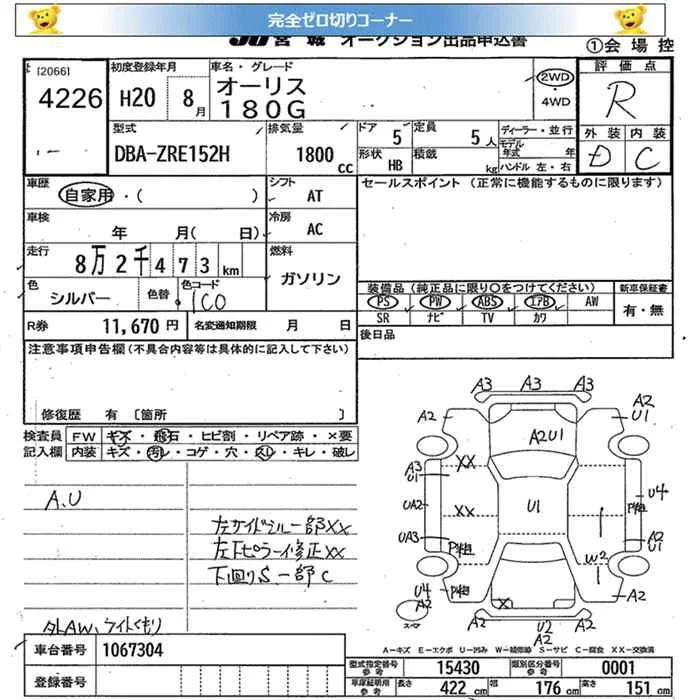 完全ゼロ切りコーナー
JU宮城 オークション出品申込書
①会場控
[2066]
4226
初度登録年月
H20 8月
車名・グレード
オーリス
180G
2WD
・4WD
評価点
R
外装 内装
D C
型式
DBA-ZRE152H
排気量
1800 cc
ドア 5
定員 5人
形状 HB
積載 kg
ディーラー・並行
モデル年式 年
ハンドル 左・右
車歴
自家用・( )
シフト
AT
セールスポイント (正常に機能するものに限ります)
車検
年 月( 日)
冷房
AC
走行
8万2千473km
燃料
ガソリン
色
シルバー
色替
色コード
1C0
装備品(純正品に限り○をつけてください)
新車保証書
PS PW ABS エアB AW
SR ナビ TV カワ
有・無
R券 11,670円
名変通知期限 月 日
後日品
注意事項申告欄(不具合内容等は具体的に記入して下さい)
修復歴 有 〔箇所 〕
検査員記入欄
FW キズ・飛石・ヒビ割・リペア跡・×要
内装 キズ・汚レ・コゲ・穴・スレ・キレ・破レ
A,U
左サイドシル一部XX
左下ピラー修正XX
下回りS一部C
外AW、ライトくもり
A3 A3 A3
A2
A2
U1
A2U1
A3
U1
XX
UA2
XX
U1
U4
P粗
UA3
P粗
A2
U1
W2
U4
A2
P粗
X
A2
スペア
U2
A2
A2
A-キズ E-エクボ U-凹み W-補修跡 S-サビ C-腐食 XX-交換済
車台番号 1067304
登録番号
型式指定番号 参考 15430
類別区分番号 参考 0001
車庫証明用 参考 長さ 422cm 幅 176cm 高さ 151cm